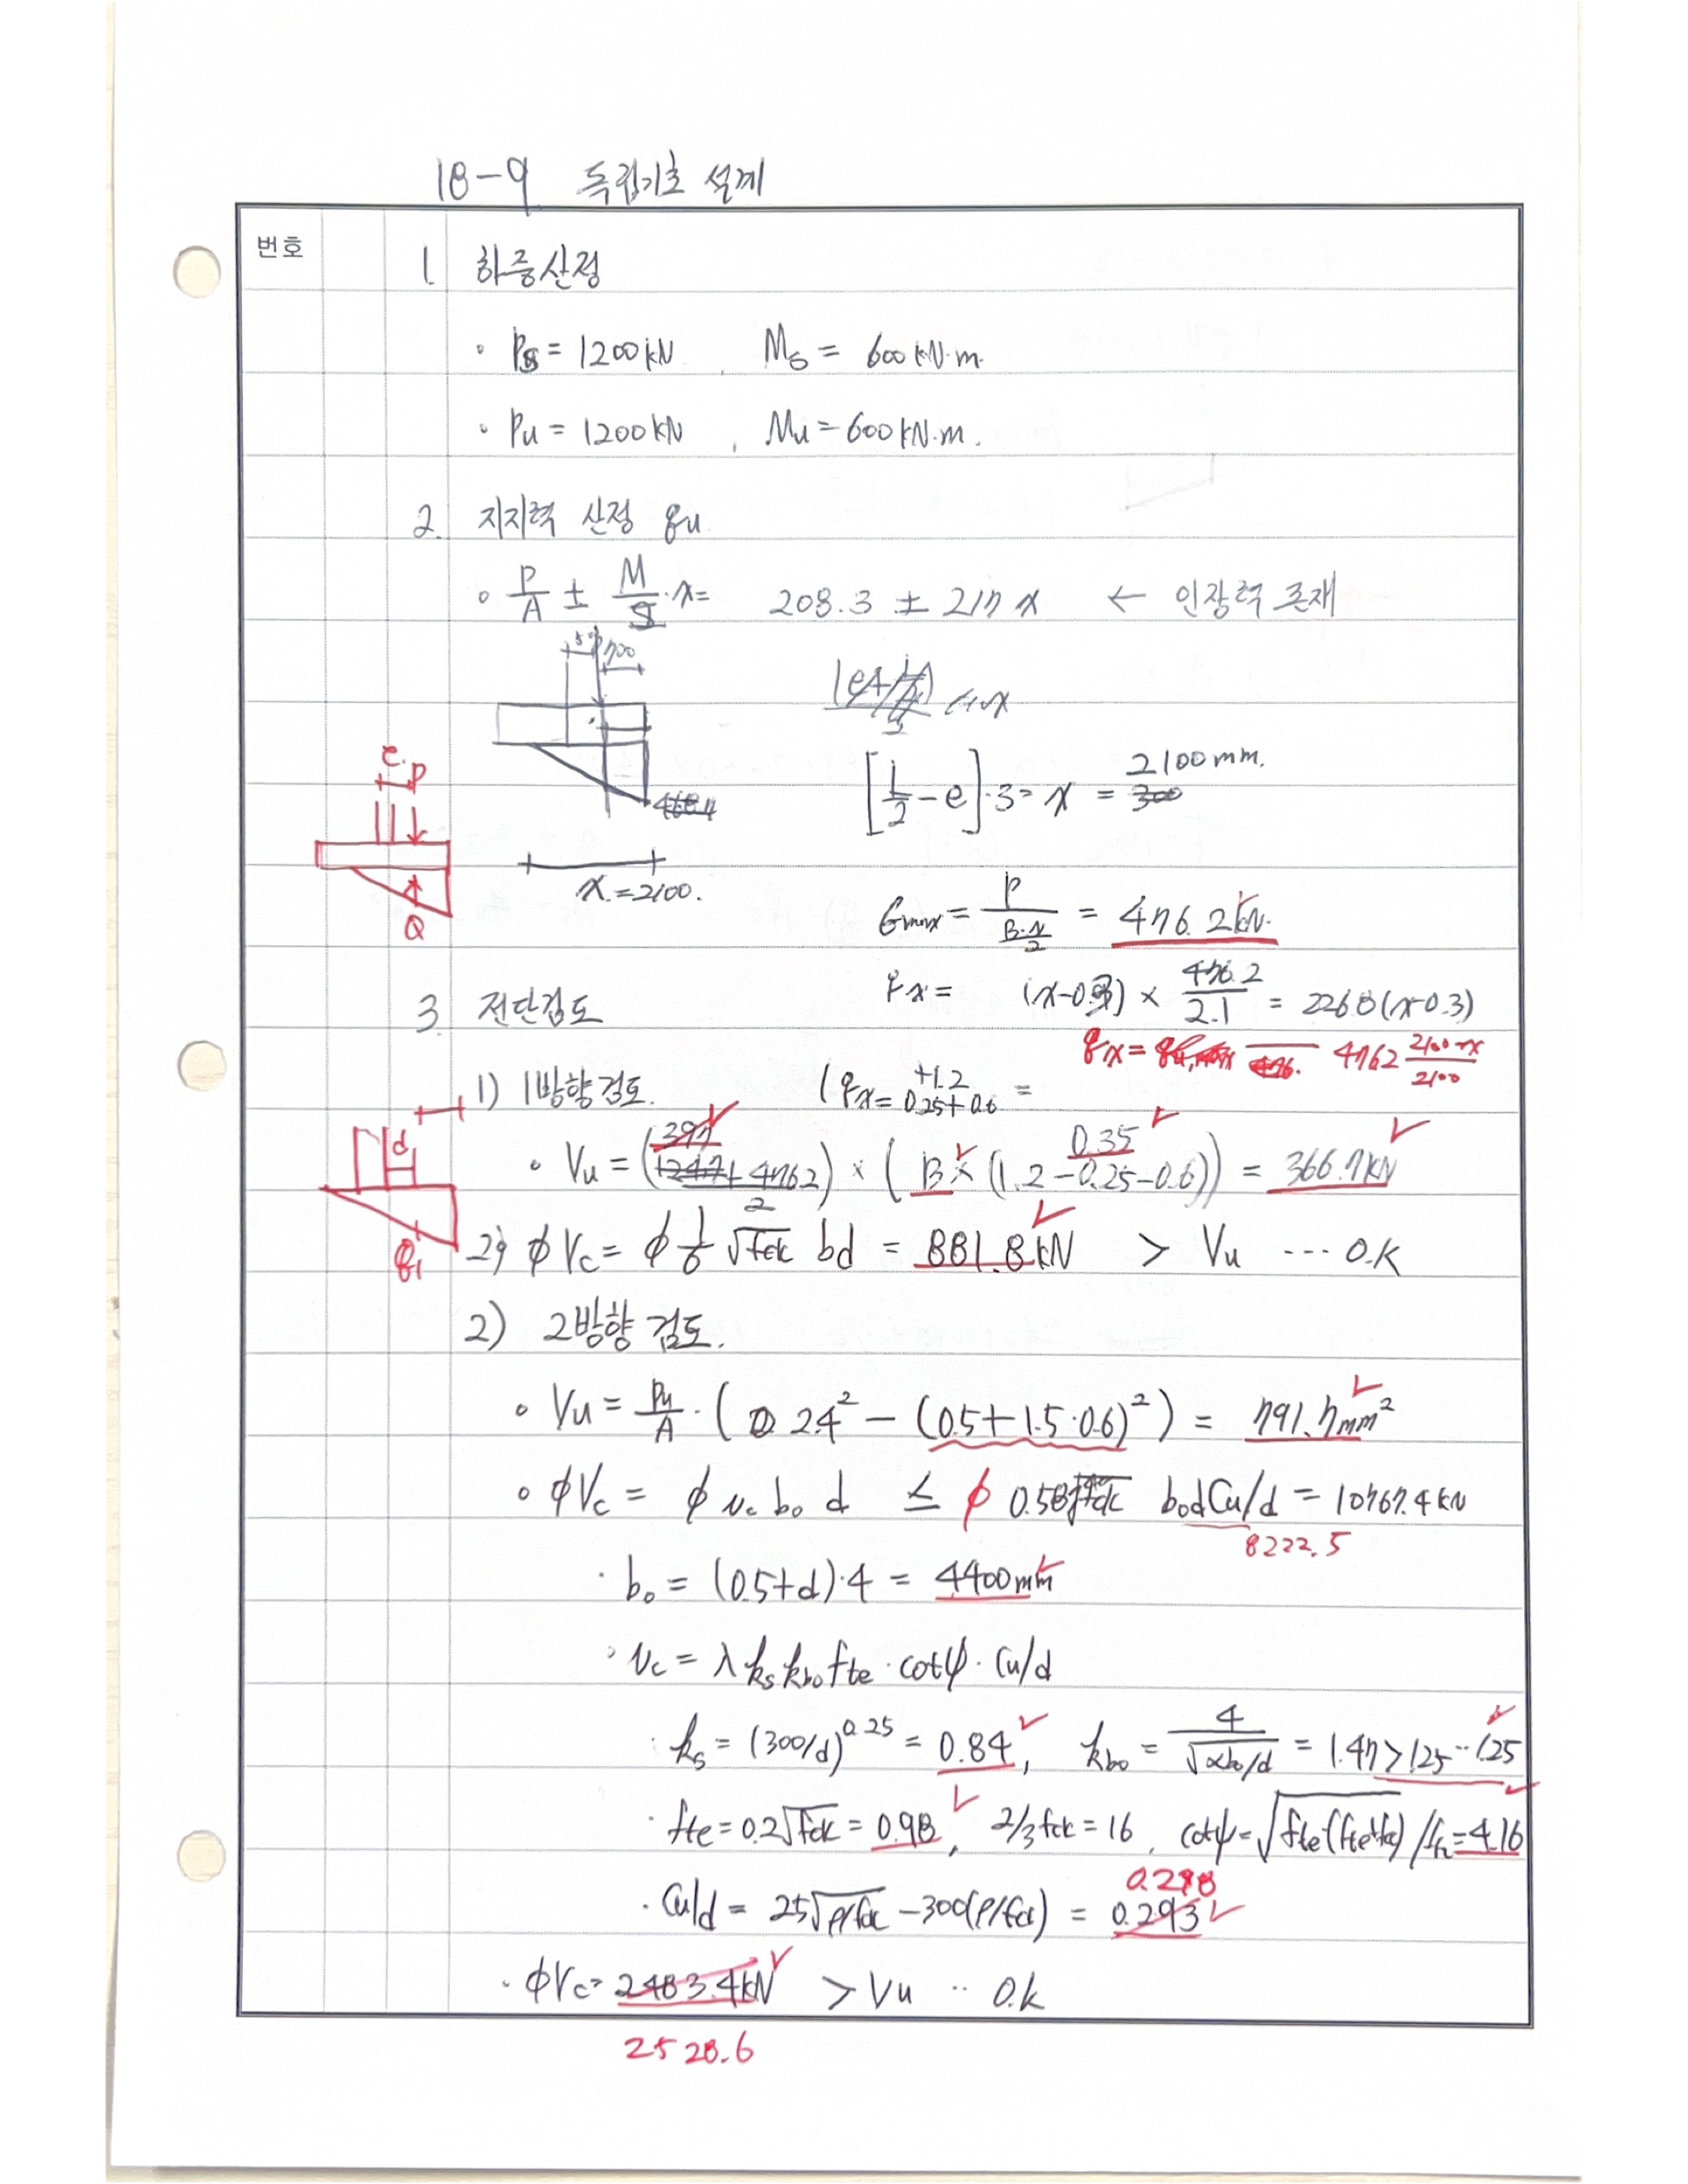 18-9 독립기초 설계
번호
1 하중산정
∘ Ps = 1200kN , Ms = 600kN·m.
∘ Pu = 1200kN , Mu = 600kN·m.
2. 지지력 산정 qu
∘ P/A ± M/I ·x = 208.3 ± 217x ← 인장력 존재
700
[L/2 - e]·3 = x = 2100mm.
e. P
x = 2100.
Q
σmax = P / (B·x/2) = 476.2kN.
qx = (x-0.3) × 476.2/2.1 = 226.8(x-0.3)
3. 전단검도
qx = 476.2 (2100-x)/2100
1) 1방향검도. (qx = 0.25+0.6 +1.2 =
d
∘ Vu = ((397 + 476.2)/2) × (B × (1.2-0.25-0.6)) = 366.7kN
0.35
q1
2) φVc = φ 1/6 √fck bd = 881.8kN > Vu ... O.K
2) 2방향 검도.
∘ Vu = Pu/A · (2.4² - (0.5+1.5·0.6)²) = 791.7mm²
∘ φVc = φ vc bo d ≤ φ 0.58fck bodCu/d = 10767.4kN
8222.5
· bo = (0.5+d)·4 = 4400mm
· vc = λ ks kbo fte · cotψ · Cu/d
· ks = (300/d)^0.25 = 0.84, kbo = 4/√(αbo/d) = 1.47 > 1.25 ·· 1.25
· fte = 0.2√fck = 0.98, 2/3 fck = 16, cotψ = √(fte·(fte+fc)) / fte = 4.16
0.298
· Cu/d = 25√(ρ/fck) - 300(ρ/fck) = 0.293
· φVc = 2483.4kN > Vu ·· O.k
2528.6